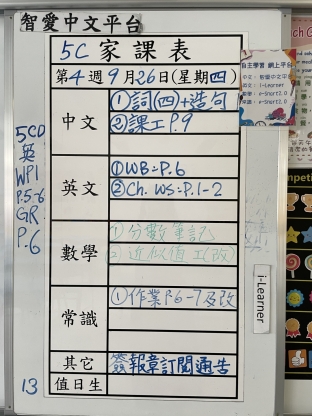 智愛中文平台
5C 家課表
第4週9月26日(星期四)
中文
①詞(四)+造句
②課工P.9
英文
①WB:P.6
②Ch. WS:P.1-2
數學
①分數筆記
②近似值工(改)
常識
①作業P.6-7及改
其它
簽報章訂閱通告
值日生
5CD
英
WP1
P.5-6
GR
P.6
13
自主學習 網上平台
中文：智愛中文平台
英文：i-Learner
數學：e-Smart2.0
常識：e-Smart2.0
i-Learner